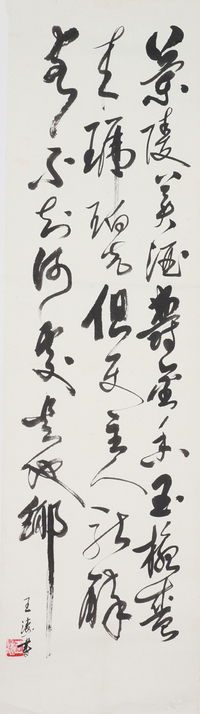 蘭陵美酒鬱金香玉椀盛
来琥珀光但使主人能醉
客不知何處是他鄉
王